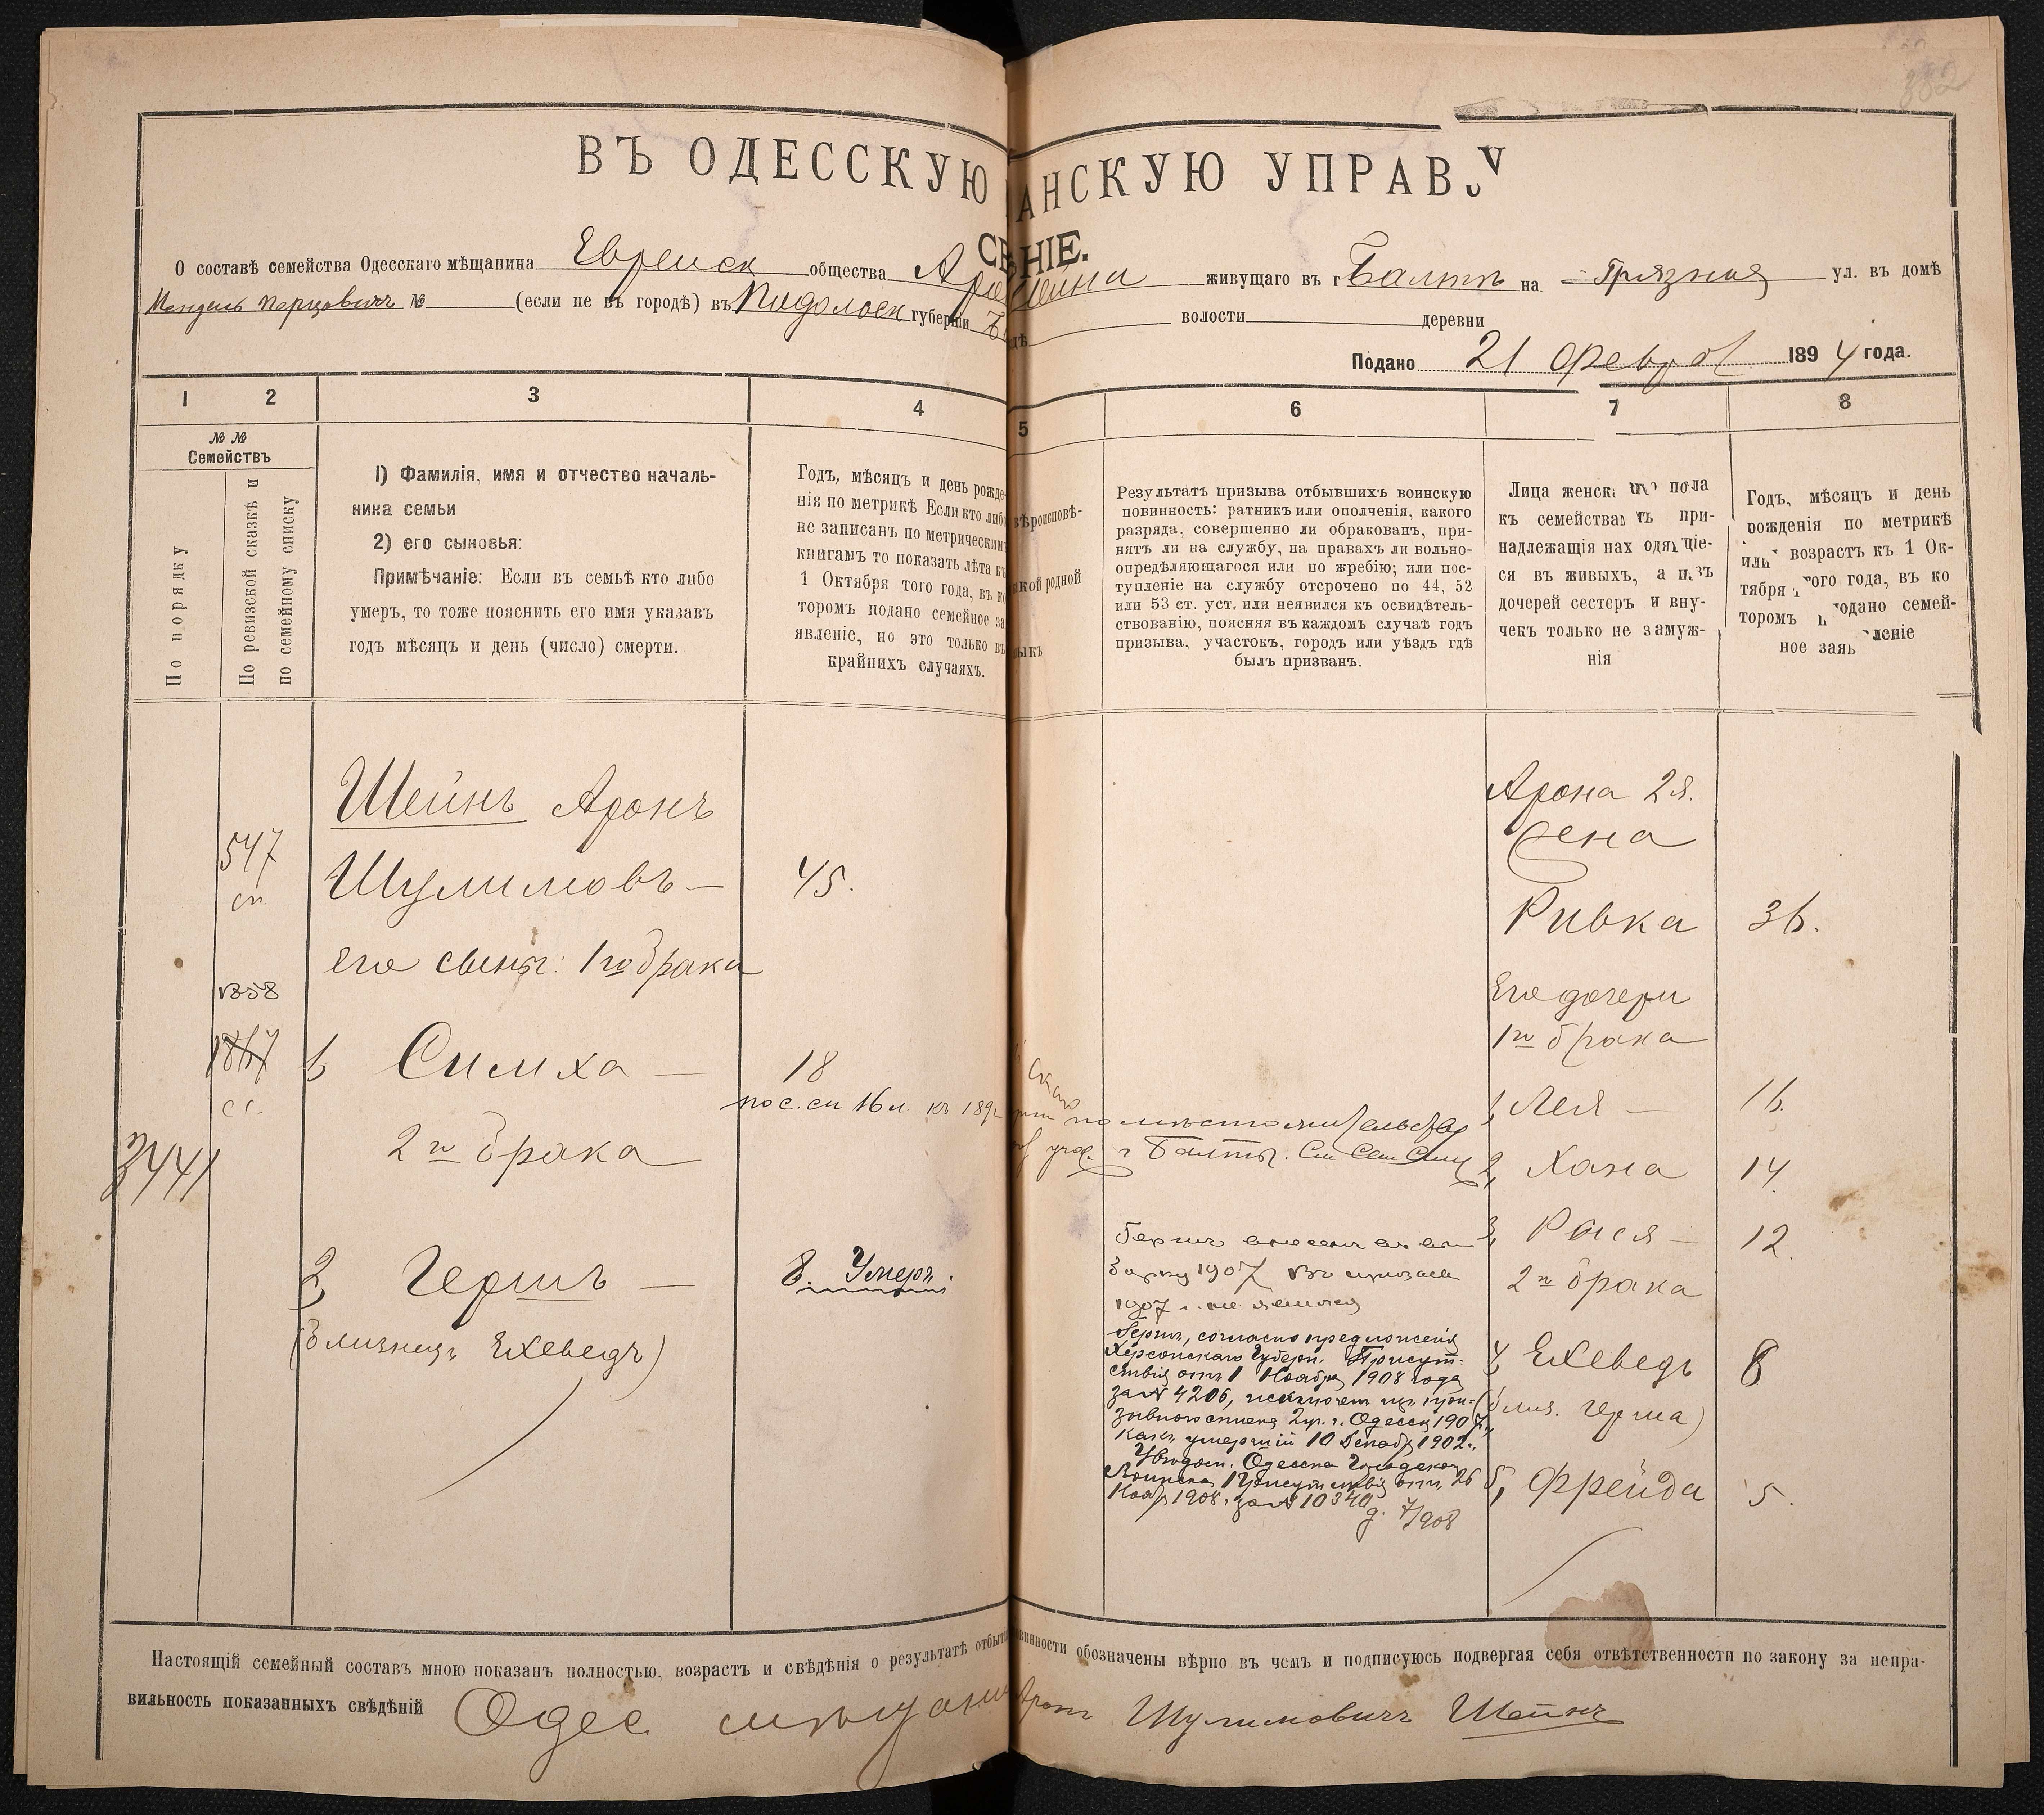 382
ВЪ ОДЕССКУЮ АНСКУЮ УПРАВУ
НІЕ.
О составѣ семейства Одесскаго мѣщанина Еврейск общества живущаго въ г Балтѣ на Грязная ул. въ домѣ
Мендель Перцовичъ № (если не въ городѣ) въ Подольск губерніи волости деревни
Подано 21 Февраля 1894 года.
1 2 3 4 5 6 7 8
№ №
Семействъ
По порядку
По ревизской сказкѣ и
по семейному списку
1) Фамилія, имя и отчество началь-
ника семьи
2) его сыновья:
Примѣчаніе: Если въ семьѣ кто либо
умеръ, то тоже пояснить его имя указавъ
годъ мѣсяцъ и день (число) смерти.
Годъ, мѣсяцъ и день рожде-
нія по метрикѣ Если кто либо
не записанъ по метрическимъ
книгамъ то показать лѣта къ
1 Октября того года, въ ко
торомъ подано семейное за
явленіе, но это только въ
крайнихъ случаяхъ.
вѣроисповѣ-
родной
Результатъ призыва отбывшихъ воинскую
повинность: ратникъ или ополченія, какого
разряда, совершенно ли обракованъ, при-
нятъ ли на службу, на правахъ ли вольно-
опредѣляющагося или по жребію; или пос-
тупленіе на службу отсрочено по 44, 52
или 53 ст. уст. или неявился къ освидѣтель-
ствованію, поясняя въ каждомъ случаѣ годъ
призыва, участокъ, городъ или уѣздъ гдѣ
былъ призванъ.
Лица женск пола
къ семействамъ при-
надлежащія нах одящіе-
ся въ живыхъ, а изъ
дочерей сестеръ и вну-
чекъ только не замуж-
нія
Годъ, мѣсяцъ и день
рожденія по метрикѣ
или возрастъ къ 1 Ок-
тября того года, въ ко
торомъ подано семей-
ное заявленіе
Шейнъ Аронъ
547
сп.
Шулимовъ — 45.
его сыны: 1го брака
1858
1867
с с.
1, Симха — 18
по с. сп 16 л. къ 189
по мѣсто жительства
уч. г Балты. См Сем Спис
3441
2го брака
2, Гершъ — 8. Умеръ.
(близнецъ Ехеведъ)
Гершъ внесенъ въ
1907 г. не явился
Гершъ, согласно предложенія
Херсонскаго Губерн. Присут-
ствія отъ 1 Ноября 1908 года
за № 4206, исключенъ изъ при-
зывного списка 2 уч. г. Одессы 1907 г.,
какъ умершій 10 Декабр 1902 г.,
Увѣдом. Одесска Городского
Воинска Присутствія отъ 26
Нояб 1908 г. за № 10340
Арона 2я.
жена
Ривка 36.
Его дочери
1го брака
1, Лея — 16.
2, Хана 14.
3, Рася — 12.
2го брака
4, Ехеведъ 8
(близ. Герша)
5, Фрейда 5.
Настоящій семейный составъ мною показанъ полностью, возрастъ и свѣдѣнія о результатѣ отбыт винности обозначены вѣрно въ чемъ и подписуюсь подвергая себя отвѣтственности по закону за непра-
вильность показанныхъ свѣдѣній Одес мѣщанинъ Аронъ Шулимовичъ Шейнъ